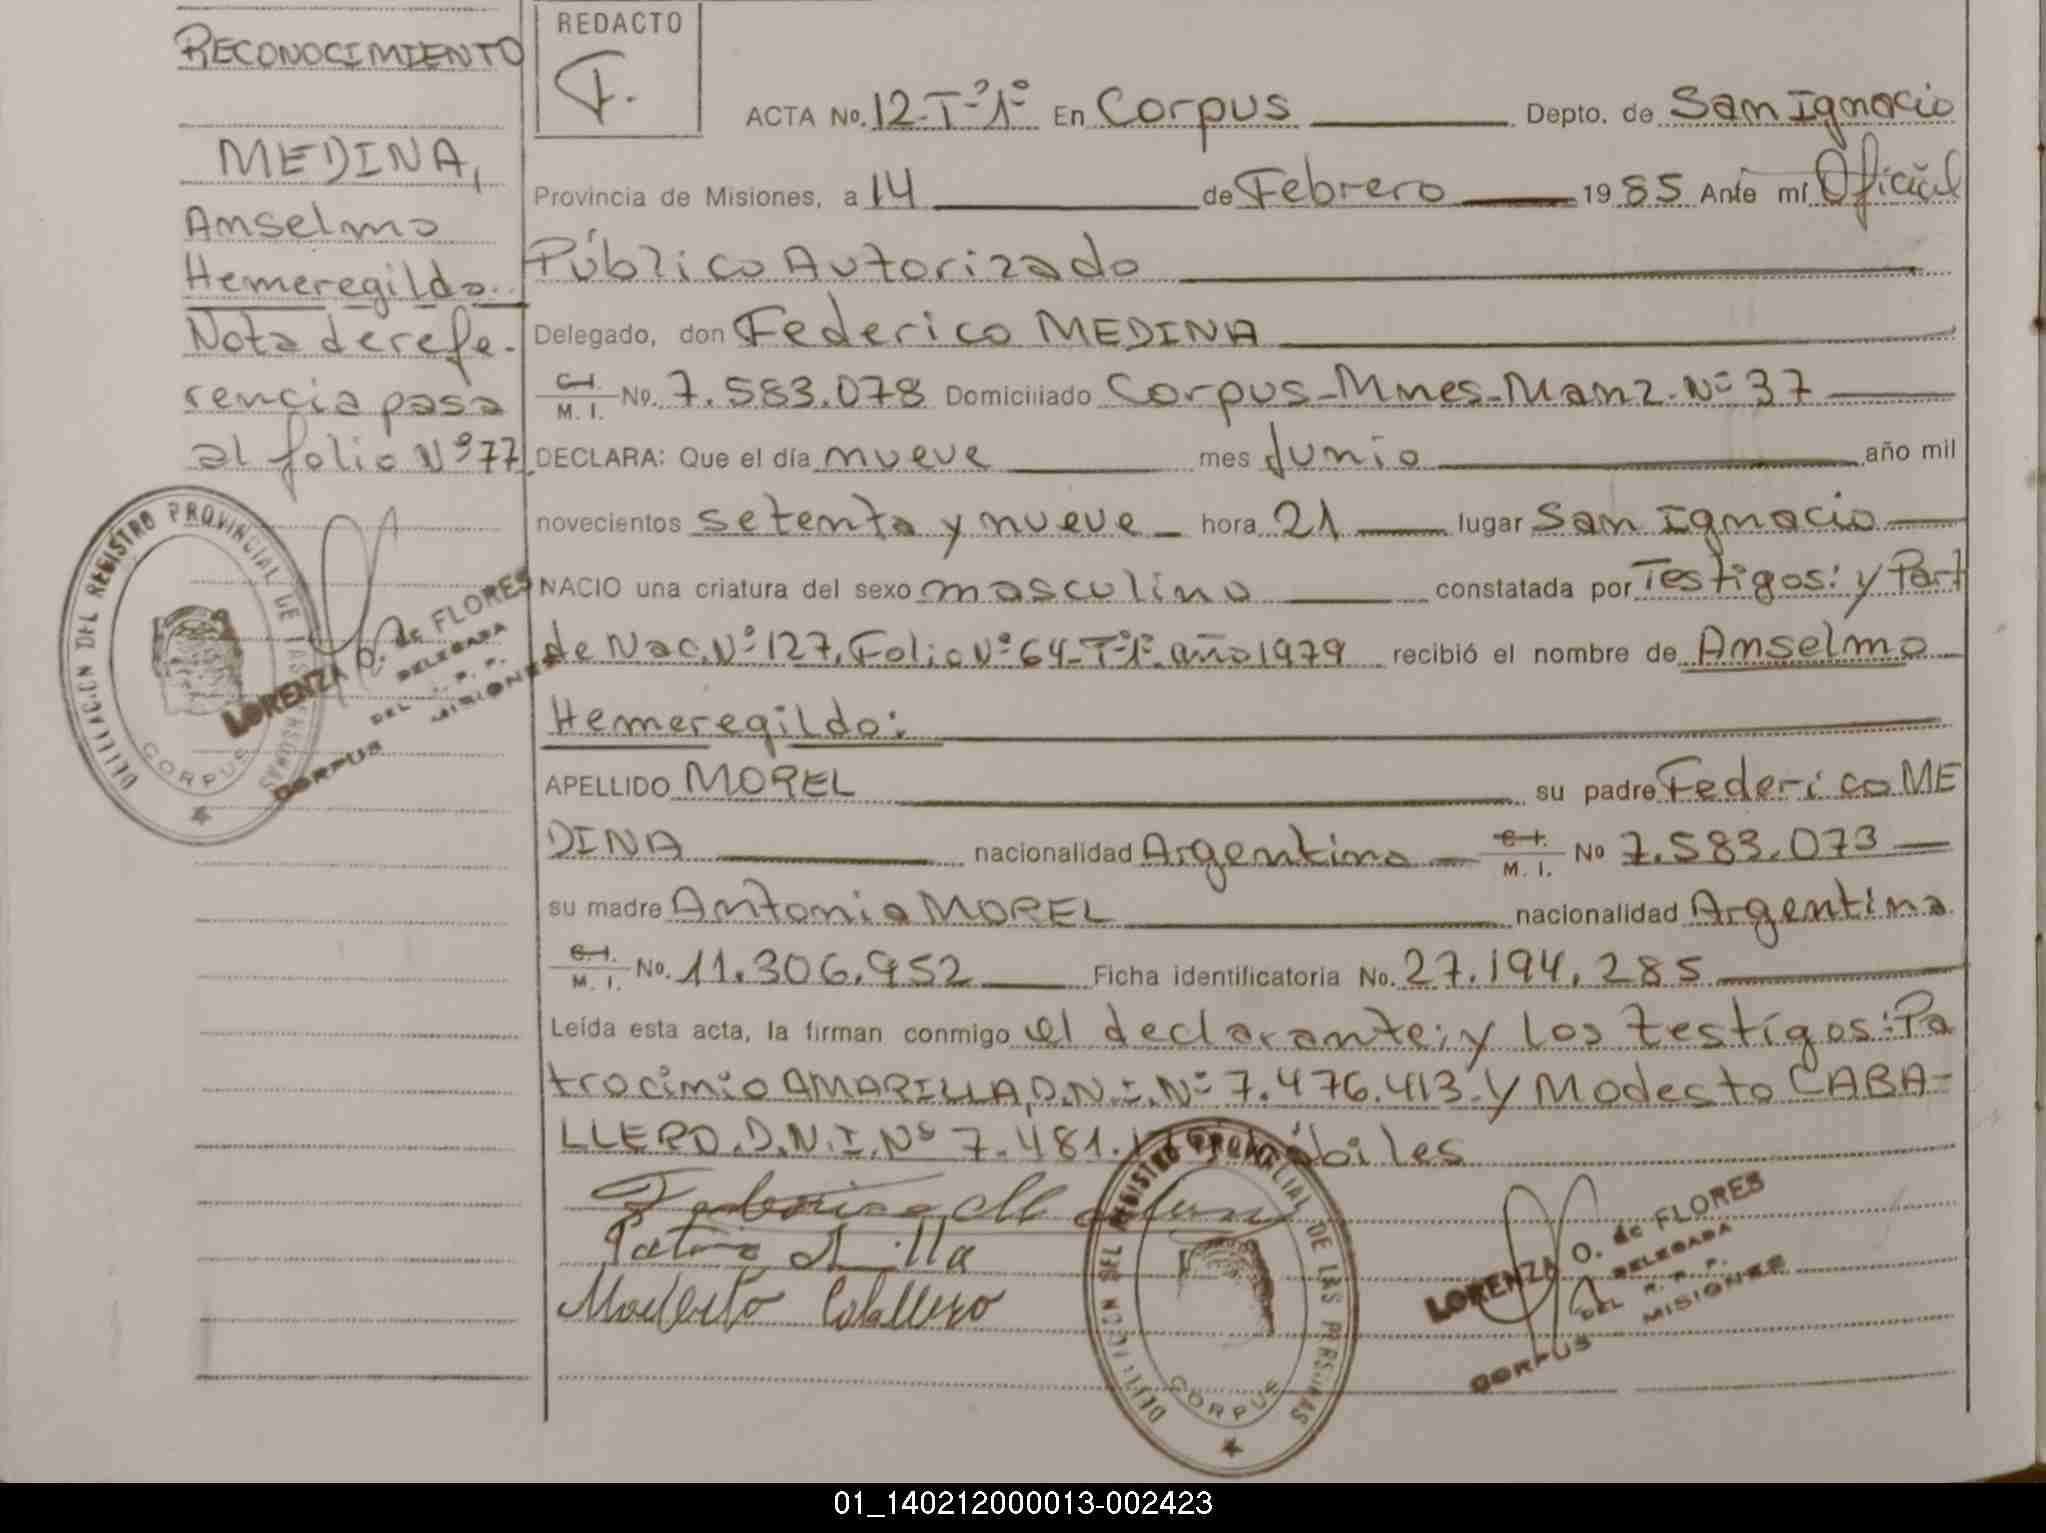 RECONOCIMIENTO
MEDINA,
Anselmo
Hemeregildo.
Nota de refe-
rencia pasa
al folio Nº 77.
DELEGACION DEL REGISTRO PROVINCIAL DE LAS PERSONAS
CORPUS
LORENZA O. de FLORES
DELEGADA
DEL R. P. P.
CORPUS MISIONES
REDACTO
F.
ACTA No. 12-Tº-1º En Corpus Depto. de San Ignacio
Provincia de Misiones, a 14 de Febrero 1985 Ante mí Oficial
Público Autorizado
Delegado, don Federico MEDINA
C.I. M. I. No. 7.583.078 Domiciliado Corpus-Mnes-Manz. Nº 37
DECLARA: Que el día nueve mes Junio año mil
novecientos setenta y nueve hora 21 lugar San Ignacio
NACIO una criatura del sexo masculino constatada por Testigos: y Part
de Nac. Nº 127, Folio Nº 64-Tº1º. año 1979 recibió el nombre de Anselmo
Hemeregildo:
APELLIDO MOREL su padre Federico ME
DINA nacionalidad Argentina C.I. M. I. No 7.583.073
su madre Antonia MOREL nacionalidad Argentina
C.I. M. I. No. 11.306.952 Ficha identificatoria No. 27.194.285
Leída esta acta, la firman conmigo el declarante; y los testigos: Pa
trocinio AMARILLA, D.N.I. Nº 7.476.413. y Modesto CABA-
LLERO. D.N.I. Nº 7.481. hábiles
Modesto Caballero
DELEGACION DEL REGISTRO PROVINCIAL DE LAS PERSONAS
CORPUS
LORENZA O. de FLORES
DELEGADA
DEL R. P. P.
CORPUS MISIONES
01_140212000013-002423